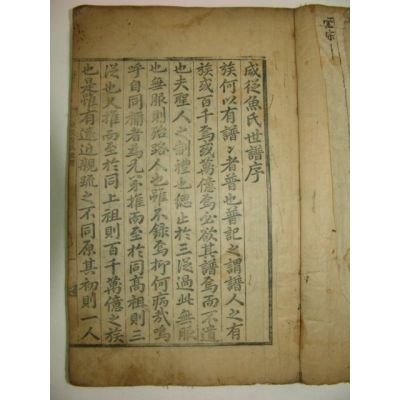 咸從魚氏世譜序
族何以有譜譜者普也普記之謂譜人之有
族或百千焉或萬億焉必欲其譜焉而不遺
也夫聖人之制禮也緦止於三從過此無服
也無服則殆路人也雖不錄焉抑何病哉嗚
呼自同禰者爲兄弟推而至於同高祖則三
從也又推而至於同上祖則百千萬億之族
也是雖有遠近親疏之不同原其初則一人